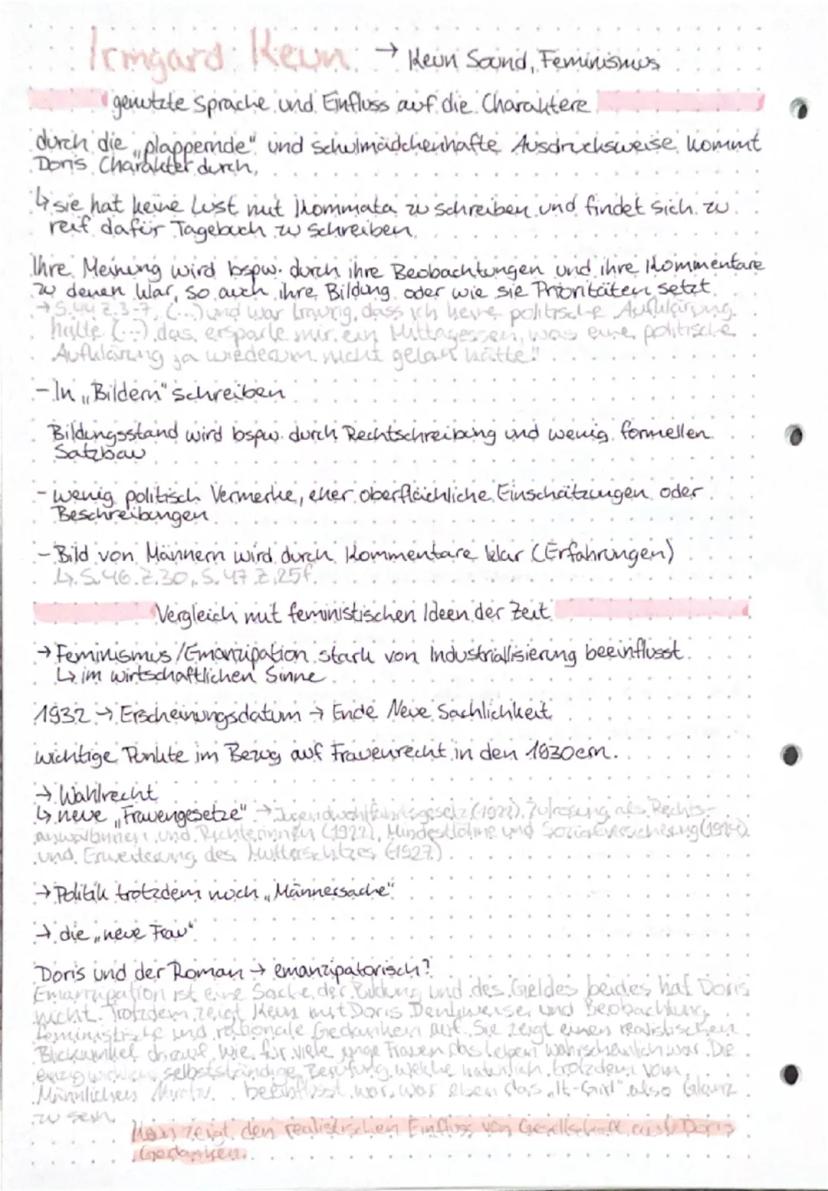 Irmgard Keun → Keun Sound, Feminismus
genutzte Sprache und Einfluss auf die Charaktere
durch die „plappernde" und schulmädchenhafte Ausdrucksweise kommt
Doris Charakter durch,
↳ sie hat keine Lust mit Kommata zu schreiben und findet sich zu
reif dafür Tagebuch zu schreiben
Ihre Meinung wird bspw. durch ihre Beobachtungen und ihre Kommentare
zu denen klar, so auch ihre Bildung oder wie sie Prioritäten setzt
→ S.44 Z.3-7, (...) und war traurig, dass ich keine politische Aufklärung
hatte (...) das ersparte mir ein Mittagessen, was eine politische
Aufklärung ja wiederum nicht getan hätte"
- In „Bildern" schreiben
Bildungsstand wird bspw. durch Rechtschreibung und wenig formellen
Satzbau
- wenig politisch Vermerke, eher oberflächliche Einschätzungen oder
Beschreibungen
- Bild von Männern wird durch Kommentare klar (Erfahrungen)
↳ S.46 Z.30, S.47 Z.25f
Vergleich mit feministischen Ideen der Zeit
→ Feminismus/Emanzipation stark von Industriallisierung beeinflusst
↳ im wirtschaftlichen Sinne
1932 → Erscheinungsdatum → Ende Neue Sachlichkeit
wichtige Punkte im Bezug auf Frauenrecht in den 1930ern.
→ Wahlrecht
↳ neue „Frauengesetze" → Jugendwohlfahrtsgesetz (1922), Zulassung als Rechts-
anwältinnen und Richterinnen (1922), Mindestlöhne und Sozialversicherung
und Erweiterung des Mutterschutzes (1927)
→ Politik trotzdem noch „Männersache"
→ die „neue Frau"
Doris und der Roman → emanzipatorisch?
Emanzipation ist eine Sache der Bildung und des Geldes beides hat Doris
nicht. Trotzdem zeigt Keun mit Doris Denkweise und Beobachtung
feministische und rationale Gedanken auf. Sie zeigt einen realistischen
Blickwinkel darauf, wie für viele junge Frauen das Leben wahrscheinlich war. Die
selbstständige welche natürlich trotzdem vom
Männlichen beeinflusst war, war eben das „It-Girl" also Glanz
zu sein
Keun zeigt den realistischen Einfluss von Gesellschaft auf Doris
Gedanken.